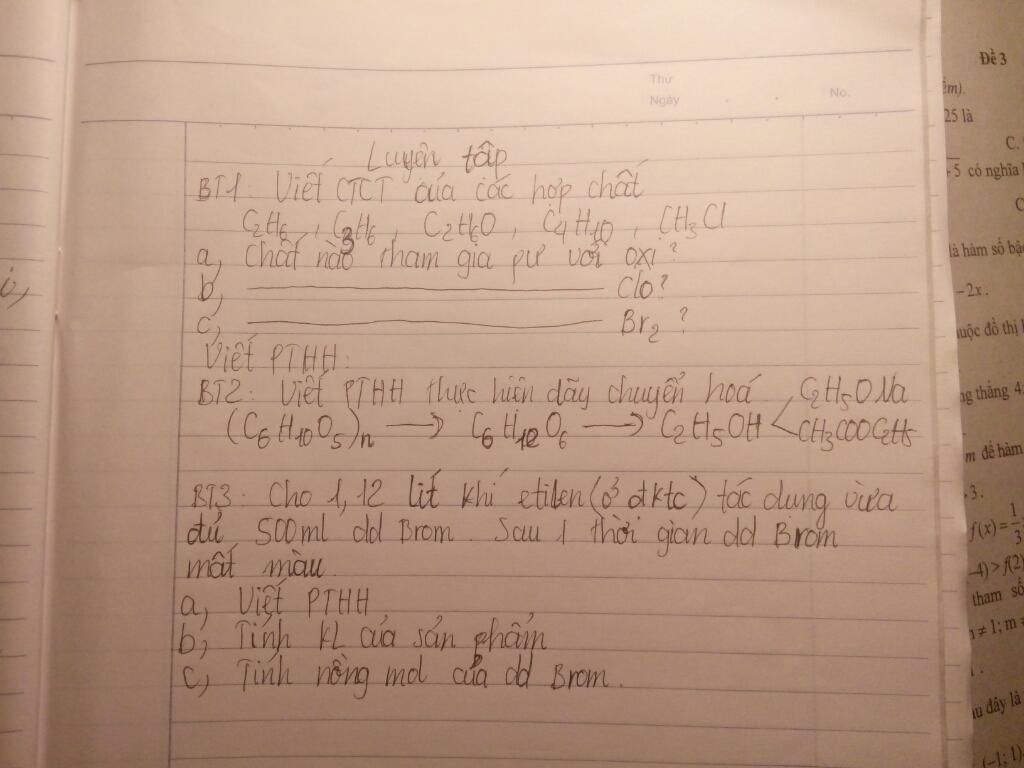 Thứ
Ngày . . No.
Luyện tập
BT1: Viết CTCT của các hợp chất
C2H6, C3H6, C2H6O, C4H10, CH3Cl
a, Chất nào tham gia pư với oxi?
b, ——— Clo?
c, ——— Br2?
Viết PTHH:
BT2: Viết PTHH thực hiện dãy chuyển hoá
(C6H10O5)n → C6H12O6 → C2H5OH < C2H5ONa
CH3COOC2H5
BT3: Cho 1,12 lít khí etilen (ở đktc) tác dụng vừa
đủ 500ml dd Brom. Sau 1 thời gian dd Brom
mất màu
a, Viết PTHH
b, Tính KL của sản phẩm
c, Tính nồng mol của dd Brom.
Đề 3
25 là
C.
5 có nghĩa
là hàm số bậ
-2x.
uộc đồ thị
ng thẳng 4
m để hàm
3.
f(x)=1/3
-4)>f(2)
tham số
≠1; m=
au đây là
(-1;1)